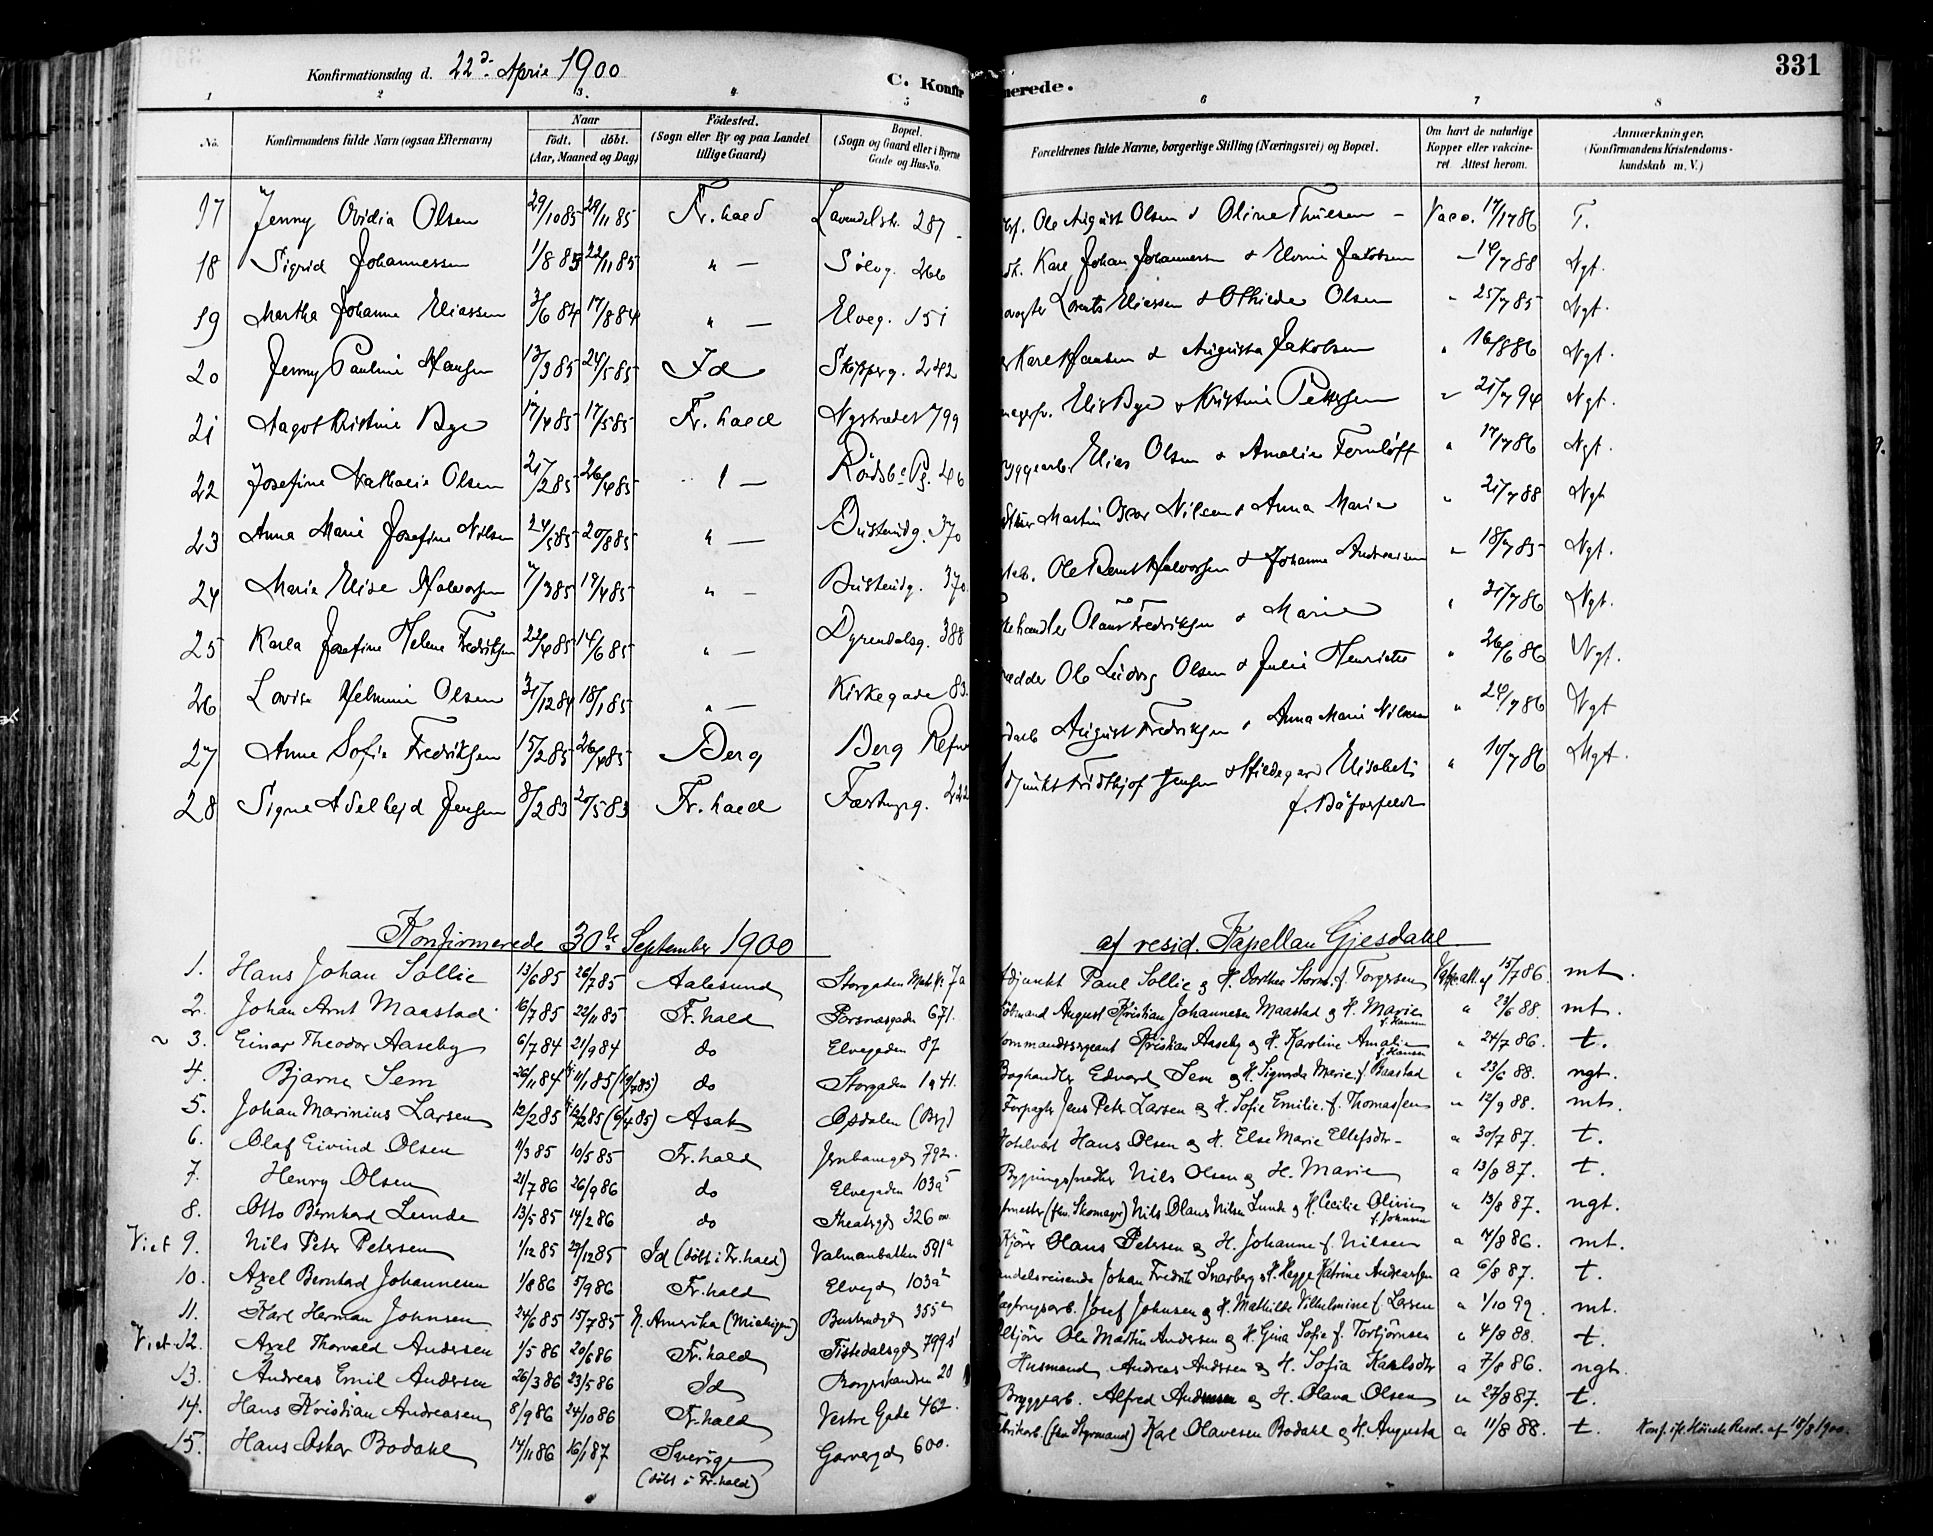 331
Konfirmationsdag d. 22d. April 1900
C. Konfirmerede.
1 2 3. 4 5 6 7 8
No. Konfirmandens fulde Navn (ogsaa Efternavn) Naar født. døbt. (Aar, Maaned og Dag) Fødested. (Sogn eller By og paa Landet tillige Gaard) Bopæl. (Sogn og Gaard eller i Byerne Gade og Hus-No. Forældrenes fulde Navne, borgerlige Stilling (Næringsvei) og Bopæl. Om havt de naturlige Kopper eller vakcineret. Attest herom. Anmærkninger. (Konfirmandens Kristendomskundskab m. V.)
17 Jenny Ovidia Olsen 29/10 85 29/11 85 Fr.hald Lavendelstr. 287 Ole August Olsen & Oline Thuesen - Vacc. 17/1786 T.
18 Sigrid Johannessen 1/8 85 22/11 85 " — Sølvg. 266 Karl Johan Johannessen & Elvine Jakobsen " 14/7 88 Ngt.
19 Martha Johanne Eliassen 3/6 84 17/8 84 " — Elveg. 151 Lorents Eliassen & Othilde Olsen " 25/7 85 Ngt.
20 Jenny Pauline Hansen 13/3 85 24/5 85 Id Skipperg. 242 Karl Hansen & Augusta Jakobsen " 16/8 86 Ngt.
21 Aagot Kristine Bye 17/4 85 17/5 85 Fr.hald Nystrædet 799 Elis Bye & Kristine Pettersen " 21/7 94 Ngt.
22 Josefine Nathalie Olsen 21/2 85 26/4 85 " — Rødsb. Pg. 46 Elias Olsen & Amalie Fernløff " 17/7 86 Ngt.
23 Anna Marie Josefine Nilsen 24/5 85 20/8 85 " — Busterudg. 370 Martin Oscar Nilsen & Anna Marie " 21/7 88 Ngt
24 Marie Elise Halvorsen 7/3 85 19/4 85 " — Busterudg. 370. Ole Bernt Halvorsen & Johanne Andreassen " 18/7 85 Ngt.
25 Karla Josefine Helene Fredriksen 22/4 85 14/6 85 " — Dyrendalsg. 388 Olaus Fredriksen & Marie " 31/7 86 Ngt.
26 Lovise Helmine Olsen 31/12 84 18/1 85 " — Kirkegade 83. Ole Ludvig Olsen & Julie Henriette " 26/6 86 Ngt.
27 Anne Sofie Fredriksen 15/2 85 26/4 85 Berg Berg August Fredriksen & Anna Marie Nilsen " 24/7 86 Ngt
28 Signe Adelheid Jensen 8/2 83 2/5 83 Fr.hald Fæstngsg. 222 Fridthjof Jensen & Hildegard Elisabet " 10/7 86 Mgt.
Konfirmerede 30te September 1900 af resid. Kapellan Gjesdahl
1. Hans Johan Sollie 13/6 85 26/7 85 Aalesund Storgaden Matr. No 7a Adjunkt Paul Sollie og H. Dorthea Storm f. Torgersen 15/7 86. mt.
2. Johan Arnt Maastad 16/7 85 22/11 85 Fr.hald Porsnæsgaden 671. Kjøbmand August Kristian Johannesen Maastad og H. Marie f. Hansen " 23/6 88. mt.
~ 3. Einar Theodor Aaseby 6/7 84 21/9 84 do Elvegaden 87 Kommandersergeant Kristian Aaseby og H. Karoline Amalie f. Hansen " 24/7 86. t.
4. Bjarne Sem 26/11 84 11/1 85 do Storgaden 1a 41. Boghandler Edvard Sem og H. Signarda Marie f. Baastad " 23/6 88. ngt.
5. Johan Marinius Larsen 12/2 85 12/2 85 (6/4 85) Asak Opdalen (Berg) Forpagter Jens Peter Larsen og H. Sofie Emilie f. Thomassen " 12/9 88. mt.
6. Olaf Eivind Olsen 11/3 85 10/5 85 Fr.hald Jernbanegd 792. Hotelvært Hans Olsen og H. Else Marie Ellefsdtr - " 30/7 87. t.
7. Henry Olsen 21/7 86 26/9 86 do Elvegaden 103a5 Bygningssnedker Nils Olsen og H. Marie " 13/8 87. t.
8. Otto Bernhard Lunde 13/5 85 14/2 86 do Theatergd 326 (fhv. Skomager) Nils Olaus Nilsen Lunde og H. Cecilie Olivie f. Johnsen " 13/8 87. ngt.
Vict 9. Nils Peter Petersen 1/12 85 27/12 85 Id (døbt i Fr.hald) Valmanbakken 591a Olaus Petersen og H. Johanne f. Nilsen " 7/8 86. mt.
10. Axel Bernhard Johannesen 1/8 86 5/9 86 Fr.hald Elvegd 103a2 Handelsreisende Johan Fredrik Svarberg og H. Hegge Katrine Andreassen " 6/8 87. t.
11. Karl Herman Johnsen 24/6 85 15/7 85 N. Amerika (Michigan) Busterudgd 355a Josef Johnsen og H. Mathilde Vilhelmine f. Larsen " 1/10 99. mt.
Vict 12. Axel Thorvald Andersen 1/5 86 20/6 86 Fr.hald Tistedalsgd 799 Ole Mathin Andersen og H. Gina Sofie f. Torbjørnsen " 4/8 88. t.
13. Andreas Emil Andersen 26/3 86 23/5 86 Id Borgerskandsen 20 Husmand Andreas Andersen og H. Sofia Karlsdtr " 7/8 86. ngt.
14. Hans Kristian Andreasen 8/9 86 24/10 86 Fr.hald Vestre Gade 462. Bryggearb. Alfred Andresen og H. Olava Olsen " 27/8 87. t.
15. Hans Oskar Bodahl 14/11 86 16/1 87 Sverige (døbt i Fr.hald) Garvergd 600. Fabrikarb. (fhv. Styrmand) Karl Olavesen Bodahl og H. Augusta " 11/8 88. t. Konf. ifl. Kirked. Resol. af 18/8 1900.